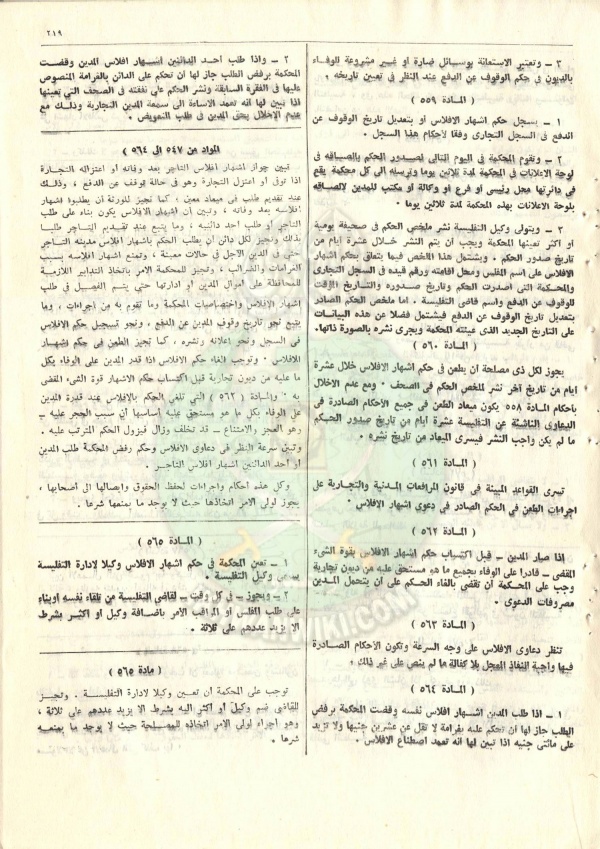 ٢١٩
٣ – وتعتبر الاستعانة بوسائل ضارة أو غير مشروعة للوفاء
بالديون في حكم الوقوف عن الدفع عند النظر في تعيين تاريخه .
( المادة ٥٥٩ )
١ – يسجل حكم اشهار الافلاس أو بتعديل تاريخ الوقوف عن
الدفع في السجل التجارى وفقا لأحكام هذا السجل .
٢ – وتقوم المحكمة في اليوم التالى لصدور الحكم بالصاقه في
لوحة الاعلانات بالمحكمة لمدة ثلاثين يوما وترسله الى كل محكمة يقع
في دائرتها محل رئيسى أو فرع أو وكالة أو مكتب للمدين لالصاقه
بلوحة الاعلانات بهذه المحكمة لمدة ثلاثين يوما .
٣ – ويتولى وكيل التفليسة نشر ملخص الحكم في صحيفة يومية
أو أكثر تعينها المحكمة ويجب أن يتم النشر خلال عشرة أيام من
تاريخ صدور الحكم . ويشتمل هذا الملخص فيما يتعلق بحكم اشهار
الافلاس على اسم المفلس ومحل اقامته ورقم قيده في السجل التجارى
والمحكمة التى أصدرت الحكم وتاريخ صدوره والتاريخ المؤقت
للوقوف عن الدفع واسم قاضى التفليسة . أما ملخص الحكم الصادر
بتعديل تاريخ الوقوف عن الدفع فيشتمل فضلا عن هذه البيانات
على التاريخ الجديد الذى عينته المحكمة ويجرى نشره بالصورة ذاتها .
( المادة ٥٦٠ )
يجوز لكل ذى مصلحة أن يطعن في حكم اشهار الافلاس خلال عشرة
أيام من تاريخ آخر نشر لملخص الحكم في الصحف . ومع عدم الاخلال
بأحكام المادة ٥٥٨ يكون ميعاد الطعن في جميع الأحكام الصادرة في
الدعاوى الناشئة عن التفليسة عشرة أيام من تاريخ صدور الحكم
ما لم يكن واجب النشر فيسرى الميعاد من تاريخ نشره .
( المادة ٥٦١ )
تسرى القواعد المبينة في قانون المرافعات المدنية والتجارية على
اجراءات الطعن في الحكم الصادر في دعوى اشهار الافلاس .
( المادة ٥٦٢ )
اذا صار المدين – قبل اكتساب حكم اشهار الافلاس بقوة الشىء
المقضى – قادرا على الوفاء بجميع ما هو مستحق عليه من ديون تجارية
وجب على المحكمة أن تقضى بالغاء الحكم على أن يتحمل المدين
مصروفات الدعوى .
( المادة ٥٦٣ )
تنظر دعاوى الافلاس على وجه السرعة وتكون الأحكام الصادرة
فيها واجبة النفاذ المعجل بلا كفالة ما لم ينص على غير ذلك .
( المادة ٥٦٤ )
١ – اذا طلب المدين اشهار افلاس نفسه وقضت المحكمة برفض
الطلب جاز لها أن تحكم عليه بغرامة لا تقل عن عشرين جنيها ولا تزيد
على مائتى جنيه اذا تبين لها أنه تعمد اصطناع الافلاس .
٢ – واذا طلب أحد الدائنين اشهار افلاس المدين وقضت
المحكمة برفض الطلب جاز لها أن تحكم على الدائن بالغرامة المنصوص
عليها في الفقرة السابقة ونشر الحكم على نفقته في الصحف التى تعينها
اذا تبين لها أنه تعمد الاساءة الى سمعة المدين التجارية وذلك مع
عدم الاخلال بحق المدين في طلب التعويض .
المواد من ٥٤٧ الى ٥٦٤ )
تبين جواز اشهار افلاس التاجر بعد وفاته أو اعتزاله التجارة
اذا توفى أو اعتزل التجارة وهو في حالة توقف عن الدفع ، وذلك
عند تقديم طلب في ميعاد معين ، كما تجيز للورثة أن يطلبوا اشهار
افلاسه بعد وفاته ، وتبين أن اشهار الافلاس يكون بناء على طلب
التاجر أو طلب أحد دائنيه ، وما يتبع عند تقديم التاجر طلبا
بذلك وتجيز لكل دائن أن يطلب الحكم باشهار افلاس مدينه التاجر
حتى في الدين الآجل في حالات معينة ، وتمنع اشهار افلاسه بسبب
الغرامات والضرائب ، وتجيز للمحكمة الأمر باتخاذ التدابير اللازمة
للمحافظة على أموال المدين أو ادارتها حتى يتم الفصل في طلب
اشهار الافلاس واختصاصات المحكمة وما تقوم به من اجراءات ، وما
يتبع نحو تاريخ وقوف المدين عن الدفع ، ونحو تسجيل حكم الافلاس
في السجل ونحو اعلانه ونشره ، كما تجيز الطعن في حكم اشهار
الافلاس . وتوجب الغاء حكم الافلاس اذا قدر المدين على الوفاء بكل
ما عليه من ديون تجارية قبل اكتساب حكم الاشهار قوة الشىء المقضى
به . والمادة ( ٥٦٢ ) التى تلغى الحكم بالافلاس عند قدرة المدين
على الوفاء بكل ما هو مستحق عليه أساسها أن سبب الحجر عليه –
وهو العجز والامتناع – قد تخلف وزال فيزول الحكم المترتب عليه .
وتبين سرعة النظر في دعاوى الافلاس وحكم رفض المحكمة طلب المدين
أو أحد الدائنين اشهار افلاس التاجر .
وكل هذه أحكام واجراءات لحفظ الحقوق وايصالها الى أصحابها ،
يجوز لولى الأمر اتخاذها حيث لا يوجد ما يمنعها شرعا .
( المادة ٥٦٥ )
١ – تعين المحكمة في حكم اشهار الافلاس وكيلا لادارة التفليسة
يسمى وكيل التفليسة .
٢ – ويجوز – في كل وقت – لقاضى التفليسة من تلقاء نفسه أو بناء
على طلب المفلس أو المراقب الأمر باضافة وكيل أو أكثر بشرط
ألا يزيد عددهم على ثلاثة .
( مادة ٥٦٥ )
توجب على المحكمة أن تعين وكيلا لادارة التفليسة . وتجيز
للقاضى ضم وكيل أو أكثر اليه بشرط ألا يزيد عددهم على ثلاثة ،
وهو اجراء لولى الأمر اتخاذه للمصلحة حيث لا يوجد ما يمنعه
شرعا .